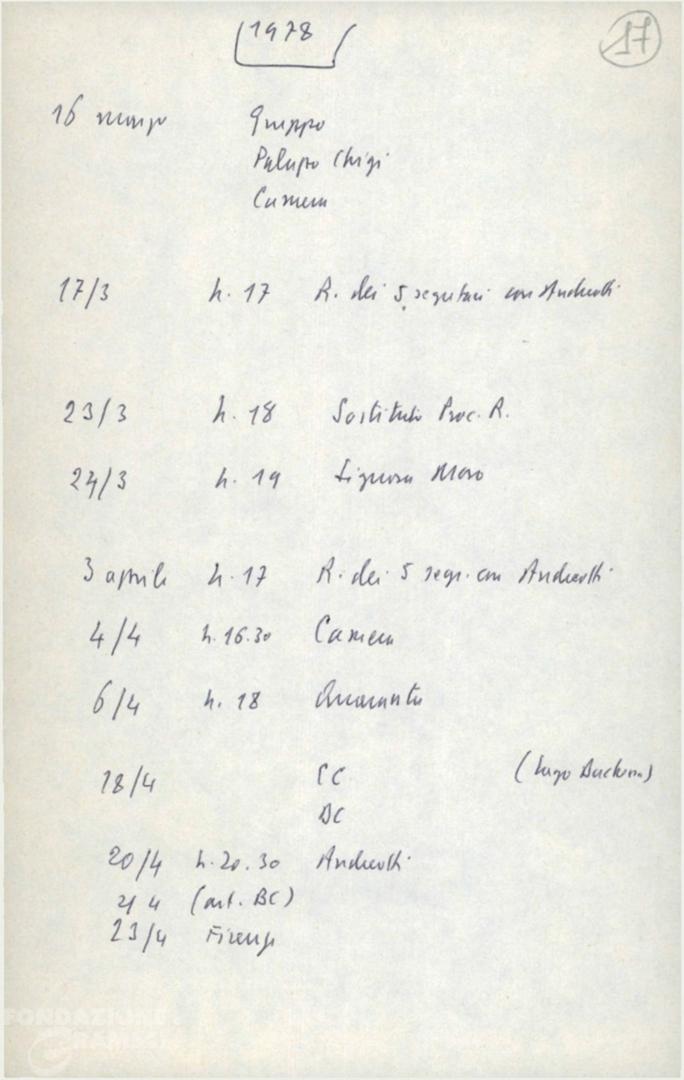 1978
17
16 marzo Gruppo
Palazzo Chigi
Camera
17/3 h. 17 R. dei 5 segretari con Andreotti
23/3 h. 18 Sostituto Proc. R.
24/3 h. 19 Signora Moro
3 aprile h. 17 R. dei 5 segr. con Andreotti
4/4 h. 16.30 Camera
6/4 h. 18 Quaranta
18/4 CC (Lago Duchessa)
BC
20/4 h. 20.30 Andreotti
21 4 (art. BC)
23/4 Firenze
FONDAZIONE
GRAMSCI